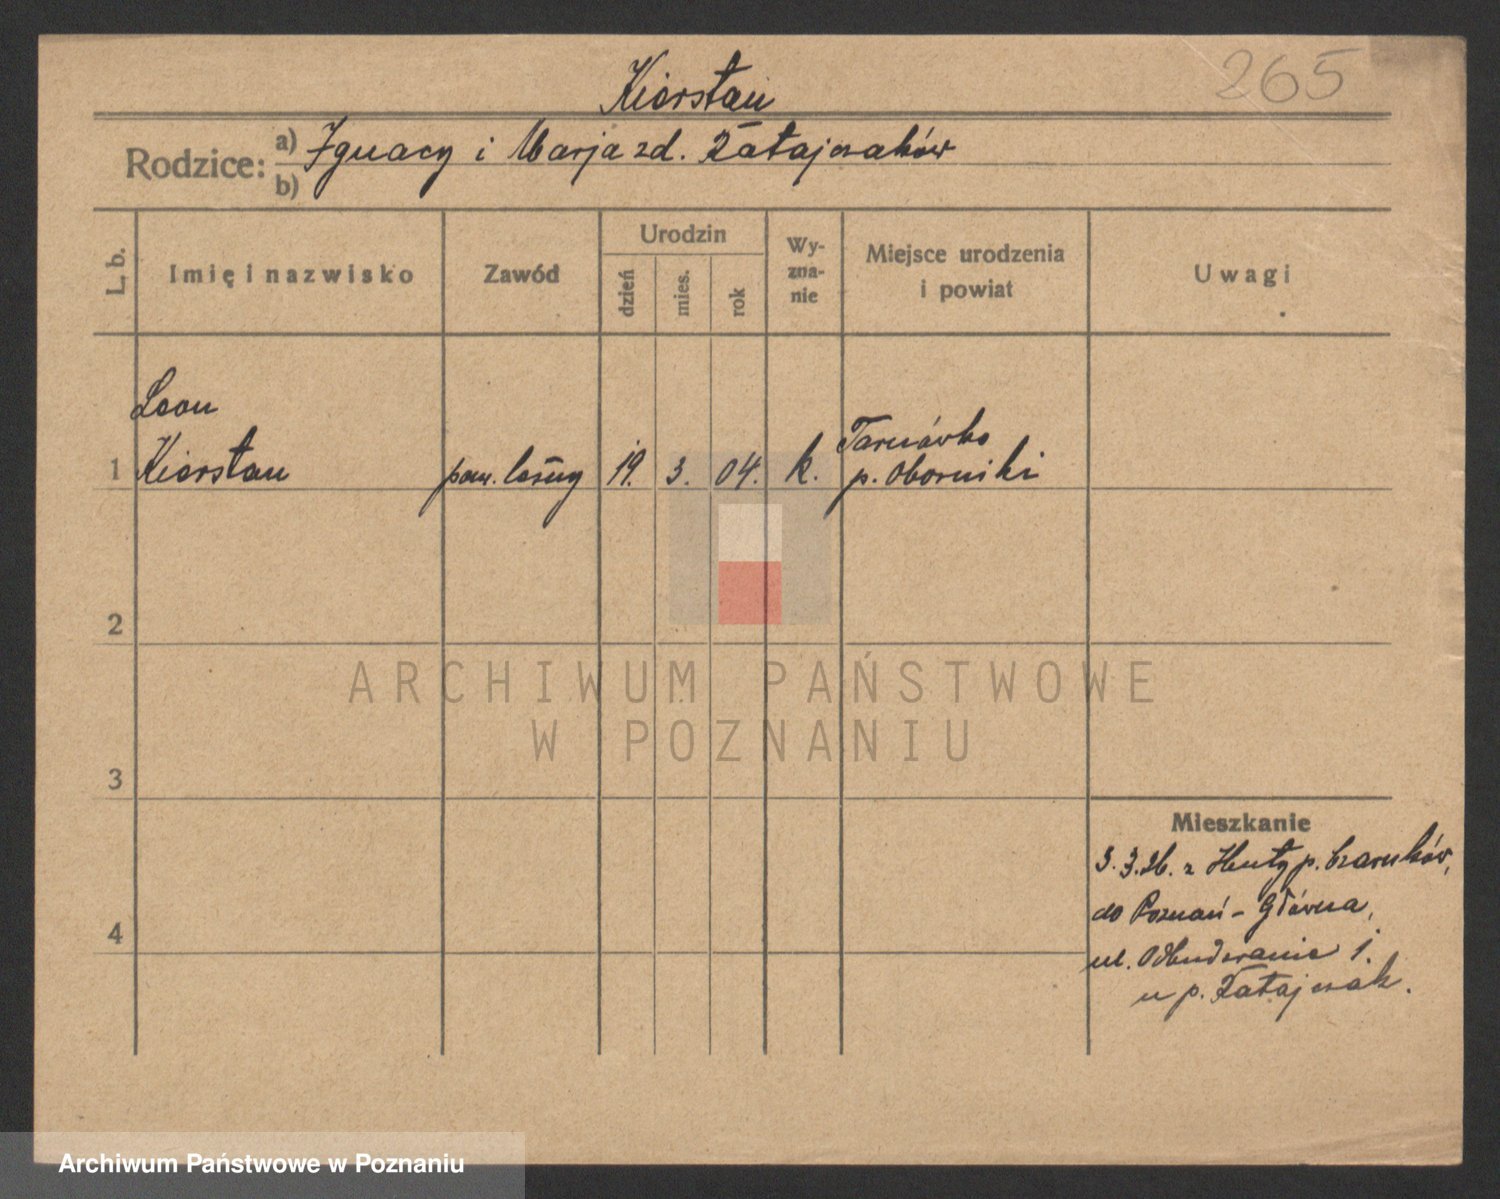 265
Kierstan
Rodzice: a) Ignacy i Marja zd. Ratajczaków
b)
L. b. Imię i nazwisko Zawód Urodzin dzień mies. rok Wyzna-nie Miejsce urodzenia i powiat Uwagi
Leon
1 Kierstan pom. leśny 19. 3. 04. k. Tarnówko
p. Oborniki
2
ARCHIWUM PAŃSTWOWE
W POZNANIU
3
Mieszkanie
3.3.26. z Huty p. Czarnków,
do Poznań - Główna,
4
ul. 1.
u p. Ratajczak.
Archiwum Państwowe w Poznaniu